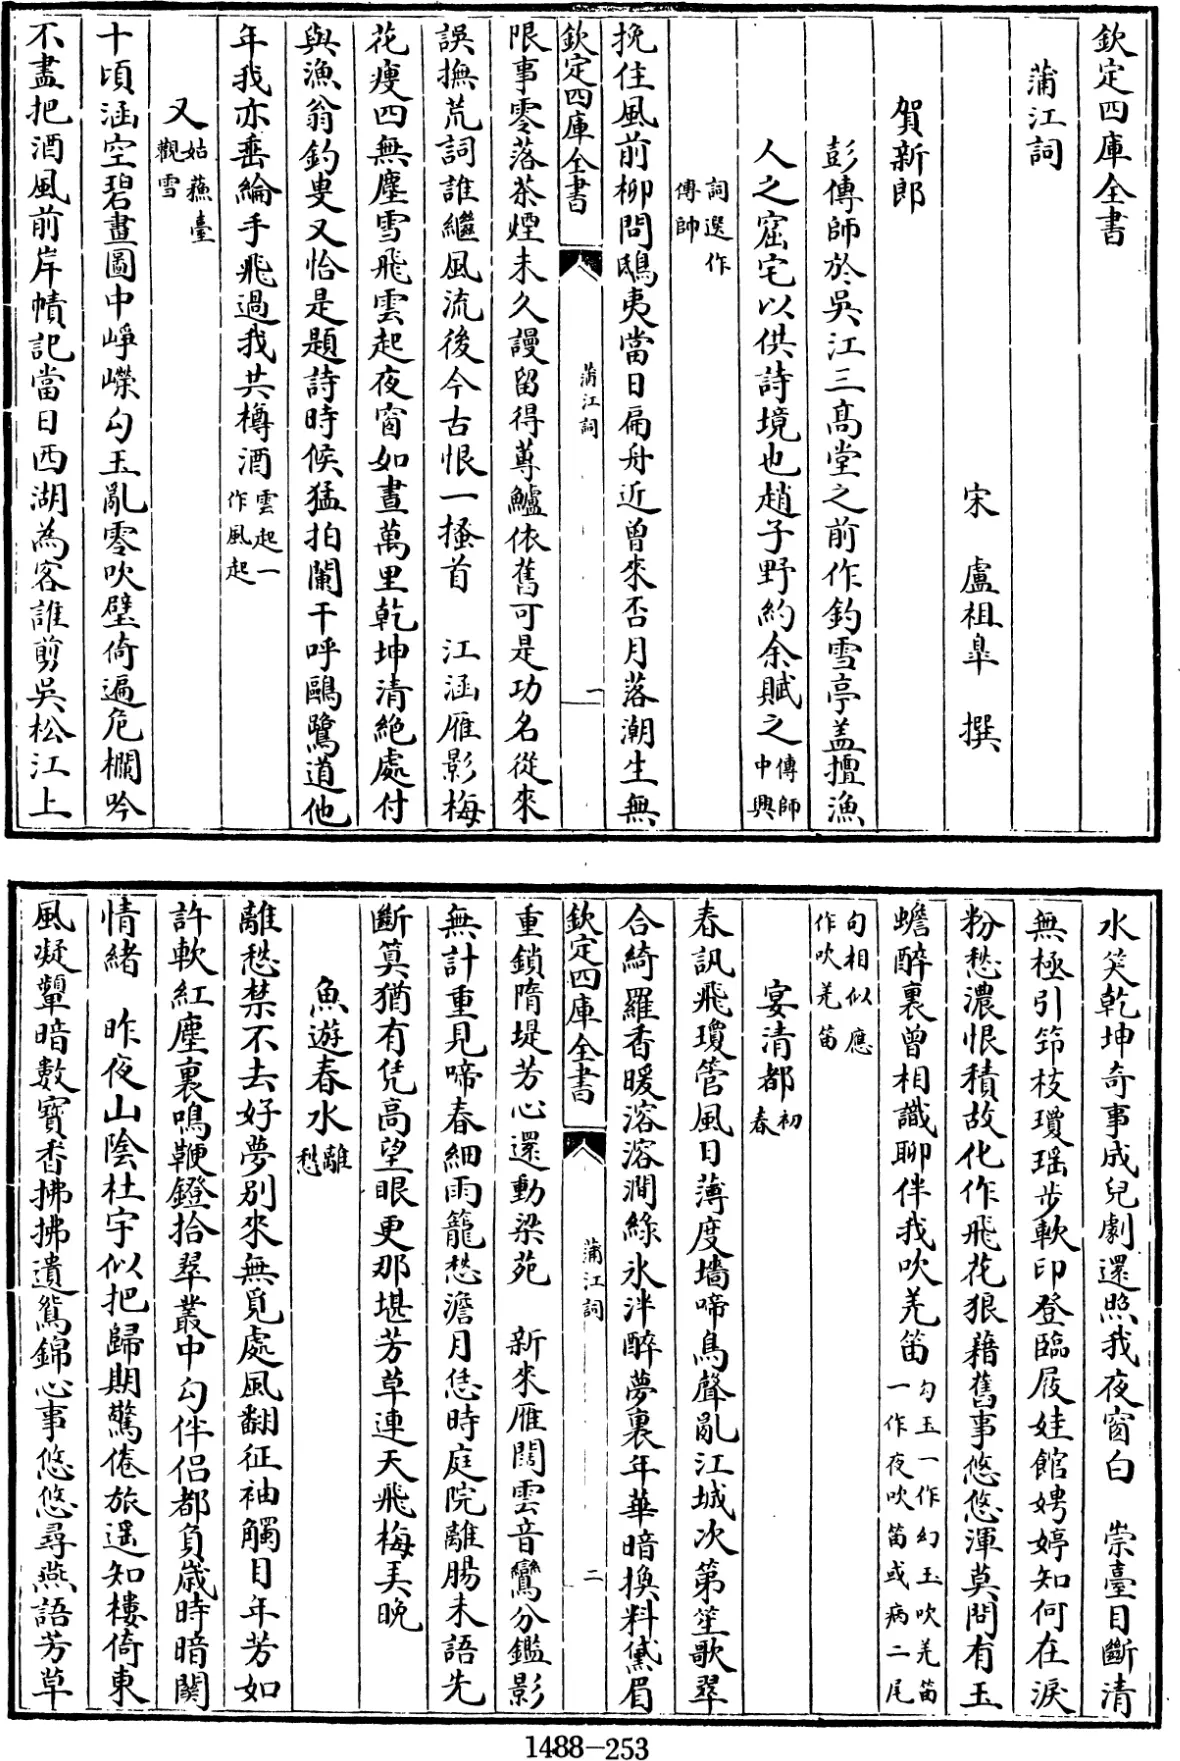 欽定四庫全書
蒲江詞
宋 盧祖臯 撰
賀新郎
彭傳師於吳江三髙堂之前作釣雪亭盖擅漁
人之窟宅以供詩境也趙子野約余賦之傳師中興
詞選作傅帥
挽住風前柳問鴟夷當日扁舟近曾來否月落潮生無
欽定四庫全書 蒲江詞 一
限事零落茶煙未久謾留得蓴鱸依舊可是功名從來
誤撫荒詞誰繼風流後今古恨一搔首 江涵雁影梅
花痩四無塵雪飛雲起夜窗如晝萬里乾坤清絶處付
與漁翁釣叟又恰是題詩時候猛拍闌干呼鷗鷺道他
年我亦垂綸手飛過我共樽酒雲起一作風起
又姑蘇臺觀雪
十頃涵空碧畫圖中崢嶸匀玉亂零吹壁倚遍危欄吟
不盡把酒風前岸幘記當日西湖為客誰剪吳松江上
水笑乾坤奇事成兒劇還照我夜窗白 崇臺目斷清
無極引筇枝瓊瑶步軟印登臨屐娃館娉婷知何在淚
粉愁濃恨積故化作飛花狼藉舊事悠悠渾莫問有玉
蟾醉裏曾相識聊伴我吹羌笛匀玉一作幻玉吹羌笛一作夜吹笛或病二尾
句相似應作吹羌笛
宴清都初春
春訊飛瓊管風日薄度墻啼鳥聲亂江城次第笙歌翠
合綺羅香暖溶溶澗綠氷泮醉夢裏年華暗換料黛眉
欽定四庫全書 蒲江詞 二
重鎖隋堤芳心還動梁苑 新來雁闊雲音鸞分鑑影
無計重見啼春細雨籠愁澹月恁時庭院離腸未語先
斷算猶有凭高望眼更那堪芳草連天飛梅弄晩
魚遊春水離愁
離愁禁不去好夢別來無覓處風翻征袖觸目年芳如
許軟紅塵裏鳴鞭鐙拾翠叢中匀伴侣都負歲時暗關
情緒 昨夜山陰杜宇似把歸期驚倦旅遥知樓倚東
風凝顰暗數寳香拂拂遺鴛錦心事悠悠尋燕語芳草
1488-253